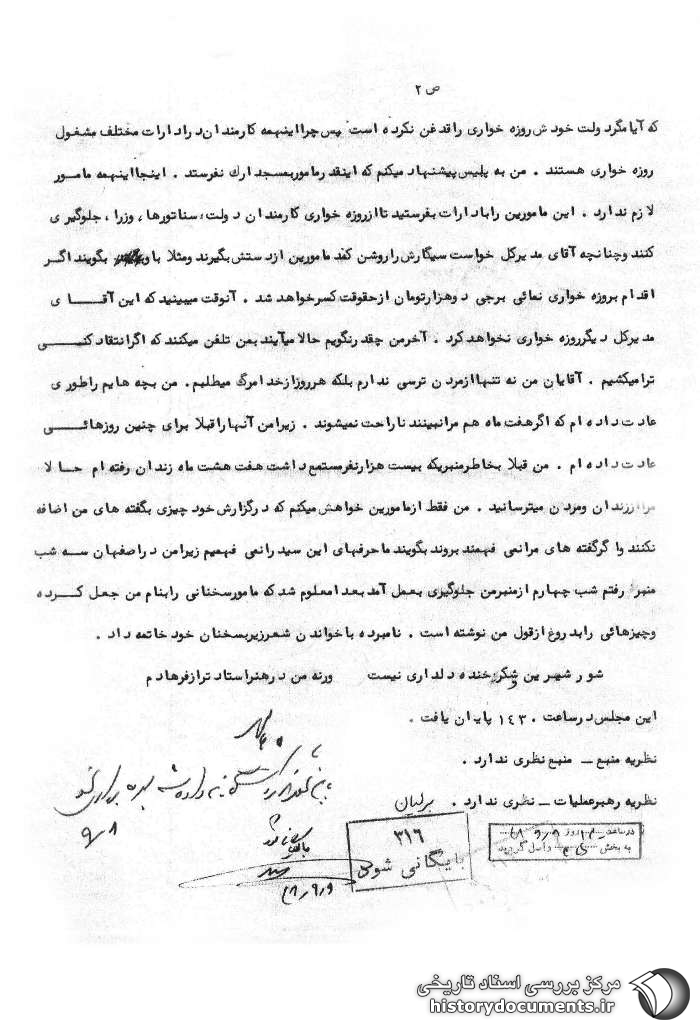 ص ۲
که آیا مگر دولت خودش روزه خواری را قدغن نکرده است پس چرا اینهمه کارمندان در ادارات مختلف مشغول
روزه خواری هستند . من به پلیس پیشنهاد میکنم که اینقدر مامور بمسجد ارک نفرستد . اینجا اینهمه مامور
لازم ندارد . این مامورین را بادارات بفرستید تا از روزه خواری کارمندان دولت، سناتورها ، وزرا ، جلوگیری
کنند و چنانچه آقای مدیرکل خواست سیگارش را روشن کند مامورین از دستش بگیرند و مثلا باو بگویند اگر
اقدام بروزه خواری نمائی برجی دو هزار تومان از حقوقت کسر خواهد شد . آنوقت میبینید که این آقای
مدیرکل دیگر روزه خواری نخواهد کرد . آخر من چقدر نگویم حالا میآیند بمن تلفن میکنند که اگر انتقاد کنی
ترا میکشیم . آقایان من نه تنها از مردن ترسی ندارم بلکه هر روز از خدا مرگ میطلبم . من بچه هایم را طوری
عادت داده ام که اگر هفت ماه هم مرا نبینند ناراحت نمیشوند . زیرا من آنها را قبلا برای چنین روزهائی
عادت داده ام . من قبلا بخاطر منبریکه بیست هزار نفر مستمع داشت هفت هشت ماه زندان رفته ام حالا
مرا از زندان و مردن میترسانید . من فقط از مامورین خواهش میکنم که در گزارش خود چیزی بگفته های من اضافه
نکنند و اگر گفته های مرا نمی فهمند بروند بگویند ما حرفهای این سید را نمی فهمیم زیرا من در اصفهان سه شب
منبر رفتم شب چهارم از منبر من جلوگیری بعمل آمد بعدا معلوم شد که مامور سخنانی را بنام من جعل کرده
و چیزهائی را بدروغ از قول من نوشته است . نامبرده با خواندن شعر زیر بسخنان خود خاتمه داد .
شور شیرین و شکر خنده دلداری نیست ورنه من در هنر استاد تر از فرهادم
این مجلس در ساعت ۱۴۳۰ پایان یافت .
نظریه منبع – منبع نظری ندارد .
نظریه رهبر عملیات – نظری ندارد . برلیان
در ساعت ۱۲ روز ۴۸/۹/۹
به بخش واصل گردید
۳۱۶
بایگانی شود
۴۸/۹/۹
۹/۸
مرکز بررسی اسناد تاریخی
historydocuments.ir